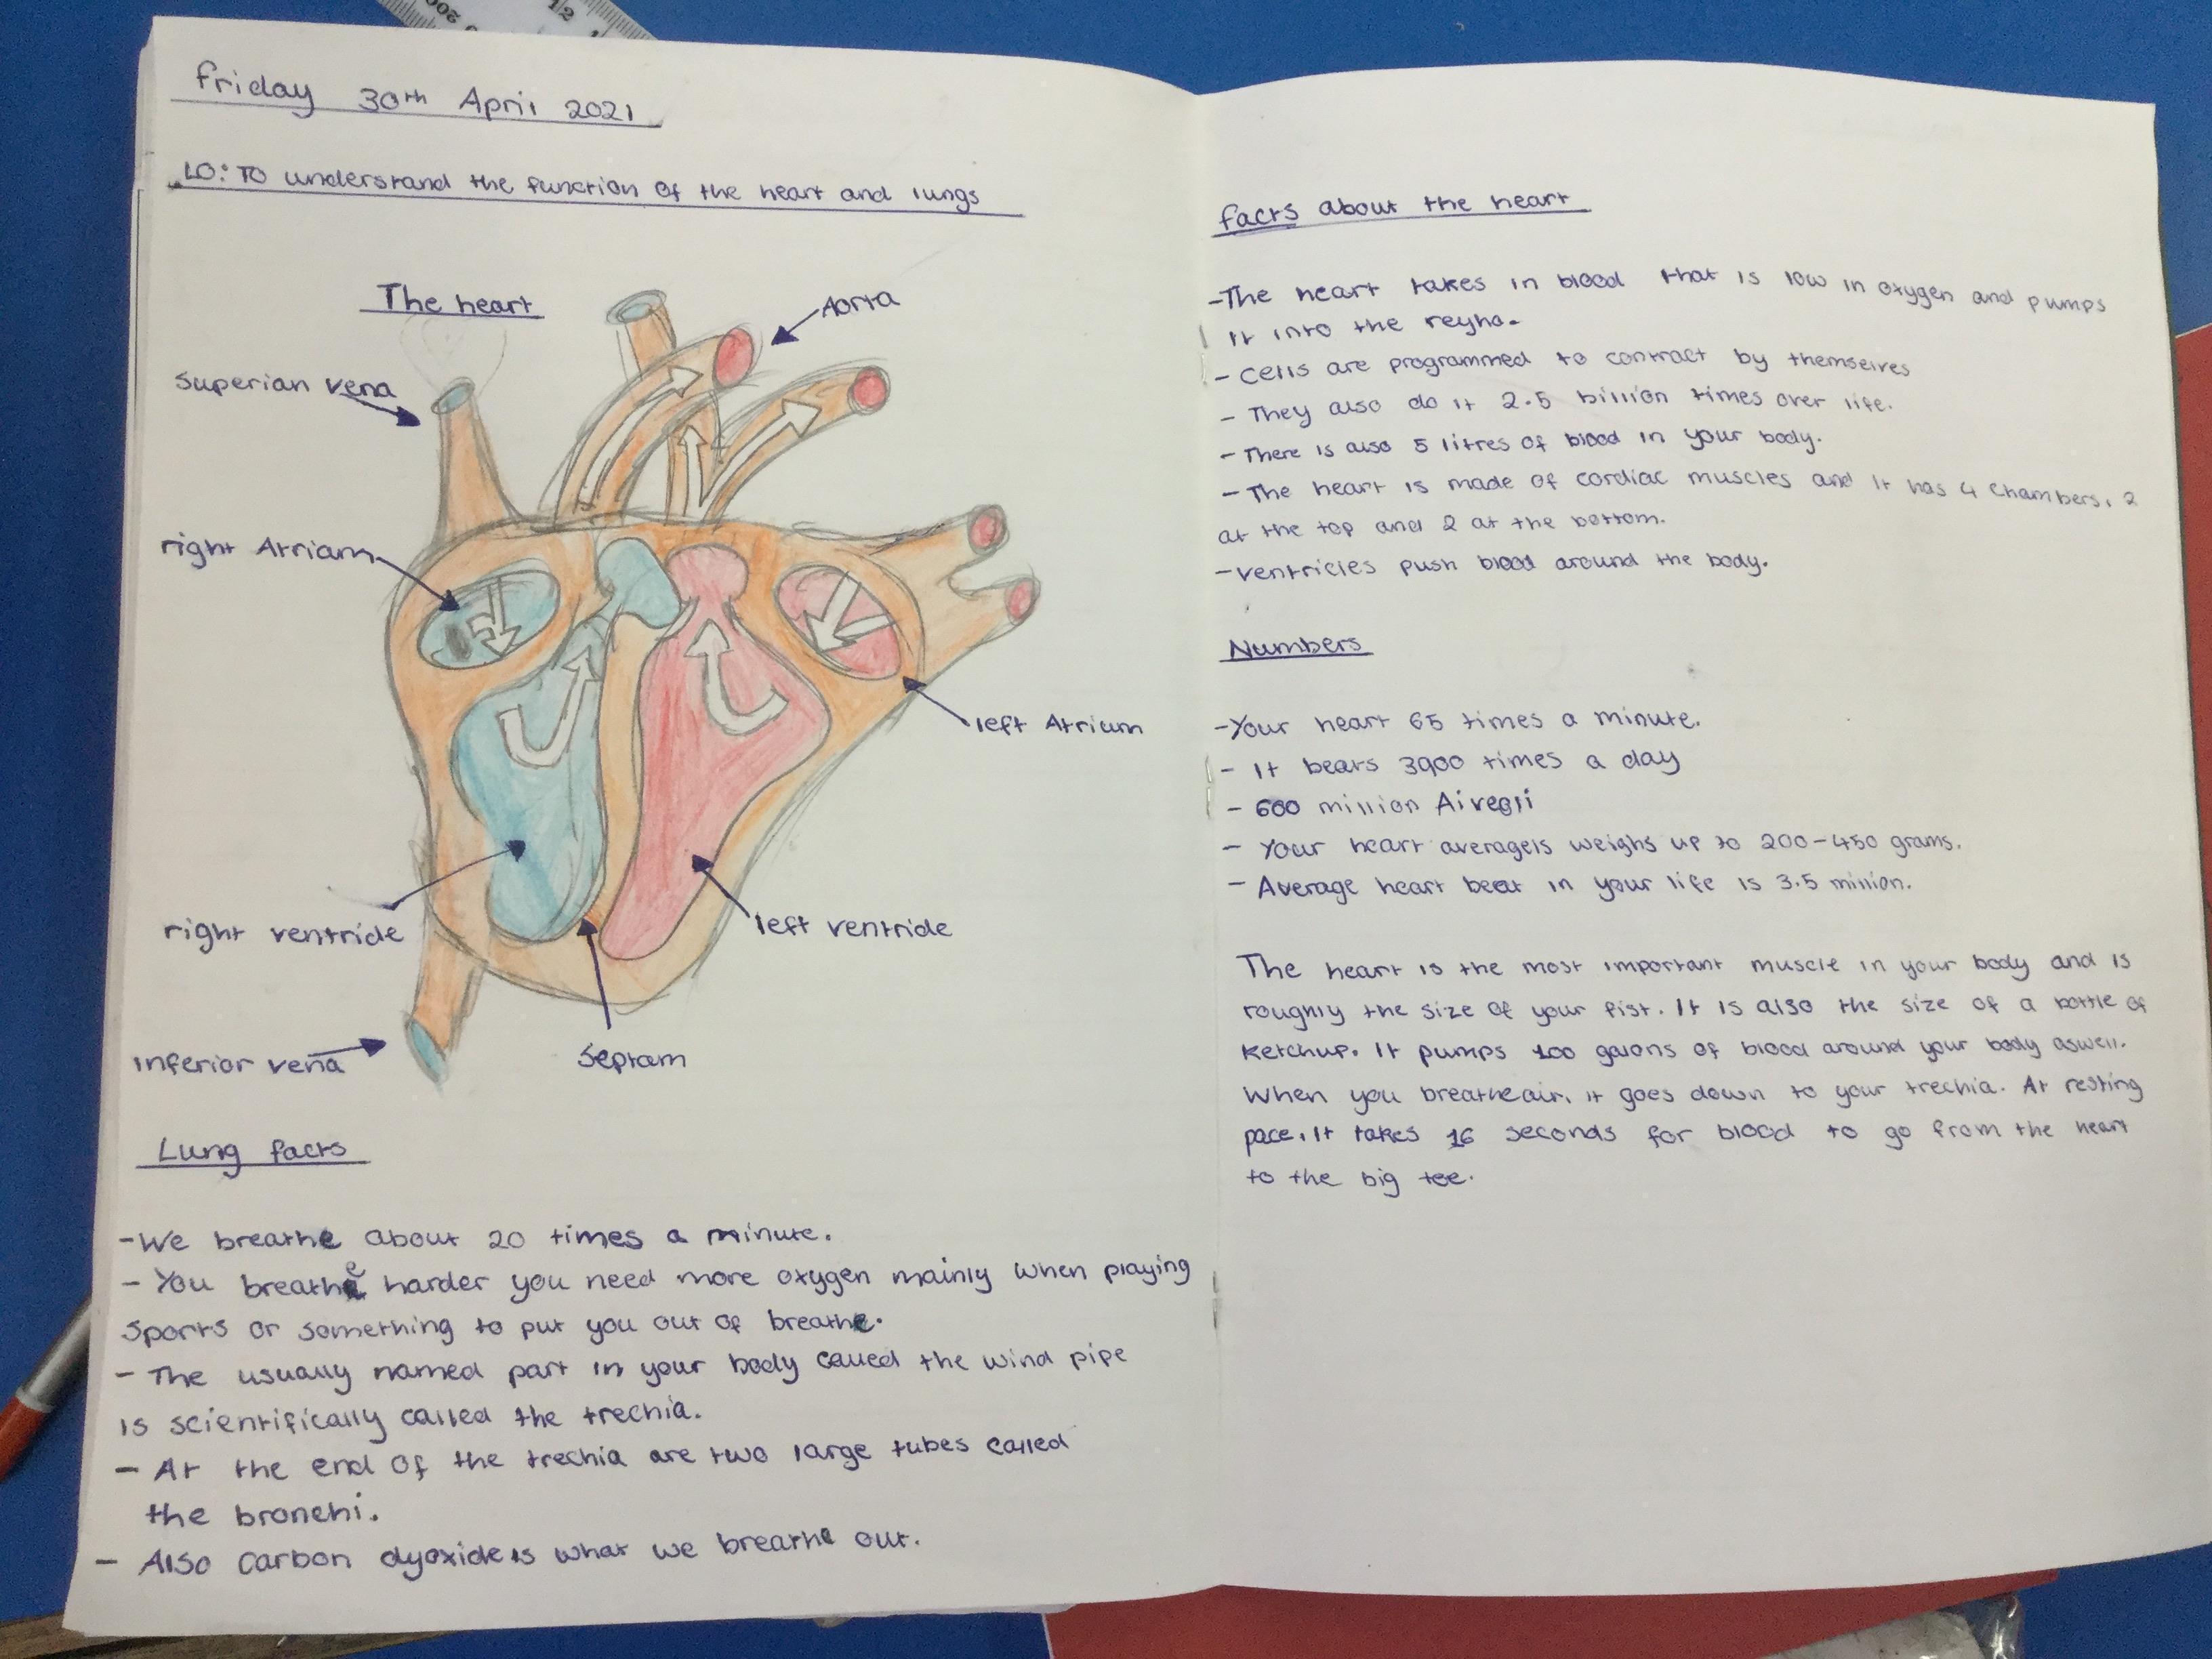 Friday 30th April 2021
LO: To understand the function of the heart and lungs
The heart
Aorta
Superian vena
right Atriam
left Atriam
right ventride
left ventride
Inferior vena
Septam
Lung facts
- We breathe about 20 times a minute.
- You breathe harder you need more oxygen mainly when playing
sports or something to put you out of breathe.
- The usually named part in your body called the wind pipe
is scientifically called the trechia.
- At the end of the trechia are two large tubes called
the bronchi.
- Also carbon dyoxide is what we breathe out.
facts about the heart
- The heart takes in blood that is low in oxygen and pumps
it into the
- cells are programmed to contract by themselves
- They also do it 2.5 billion times over life.
- There is also 5 litres of blood in your body.
- The heart is made of cordiac muscles and it has 4 chambers, 2
at the top and 2 at the bottom.
- ventricles push blood around the body.
Numbers
- Your heart 65 times a minute.
- It bears 3900 times a day
- 600 million
- Your heart averageis weighs up to 200-450 grams.
- Average heart beat in your life is 3.5 million.
The heart is the most important muscle in your body and is
roughly the size of your fist. It is also the size of a bottle of
ketchup. It pumps 100 galons of blood around your body aswell.
When you breathe air, it goes down to your trechia. At resting
pace, it takes 16 seconds for blood to go from the heart
to the big toe.